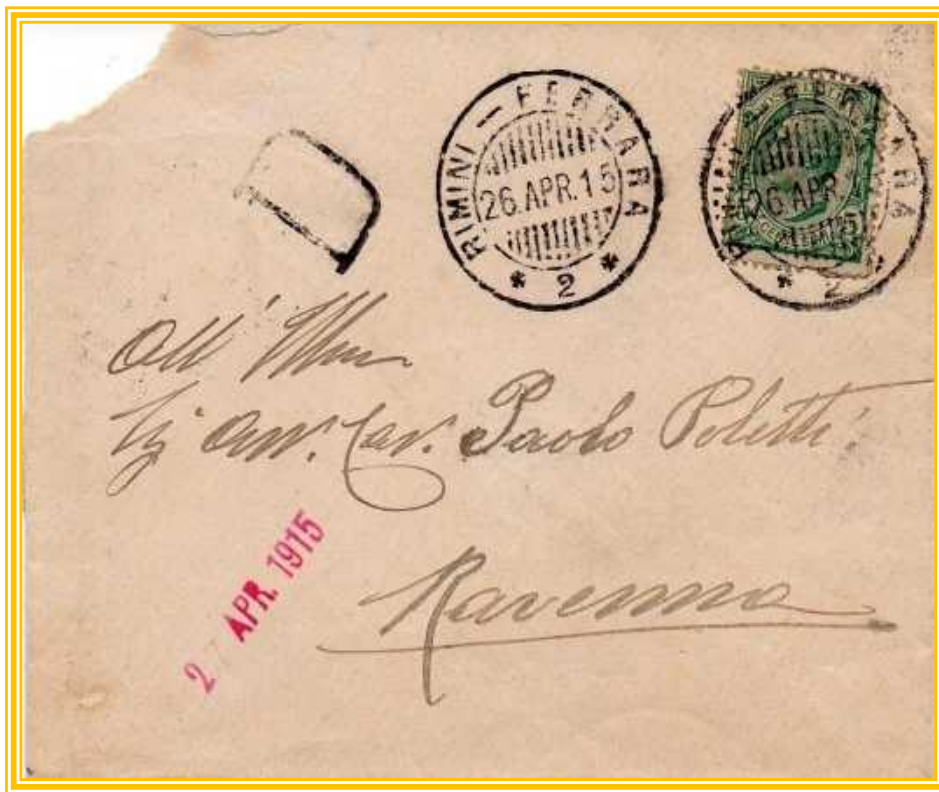 RIMINI - FERRARA
26.APR.15
* 2 *
D
26.APR.
* 2 *
All' Illmo
Sig Avv. Cav. Paolo Poletti
Ravenna
27 APR. 1915